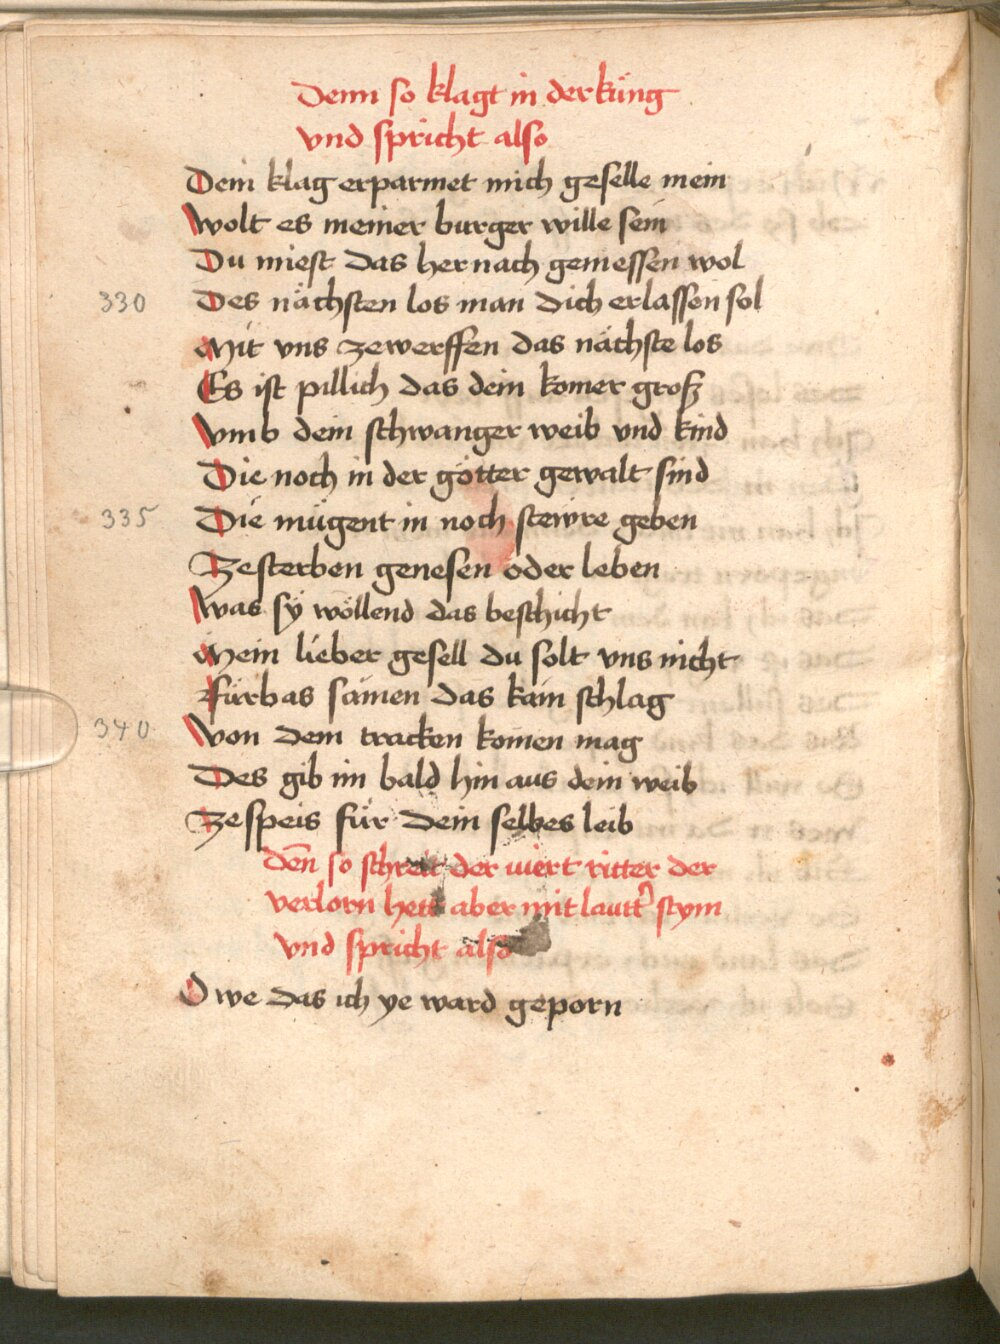 Denn so klagt in der küng
vnd spricht also
Dein klag erparmet mich geselle mein
wolt es meiner burger wille sein
Du miest das hernach geniessen wol
330 Des nächsten los man dich erlassen sol
Mit vns zewerffen das nächste los
Es ist pillich das dein komer groß
Vmb dein schwanger weib vnd kind
Die noch in der götter gewalt sind
335 Die mügent in noch stewre geben
Zesterben genesen oder leben
Was sÿ wöllend das beschicht
Mein lieber gesell du solt vns nicht
Fürbas säinen das kain schlag
340 Von dem tracken komen mag
Des gib im bald hin aus dein weib
Zespeis für dein selbes leib
den̄ so schreit der viert ritter der
verlorn hett aber mit lautt̾ stym
vnd spricht also
O we das ich ye ward geporn